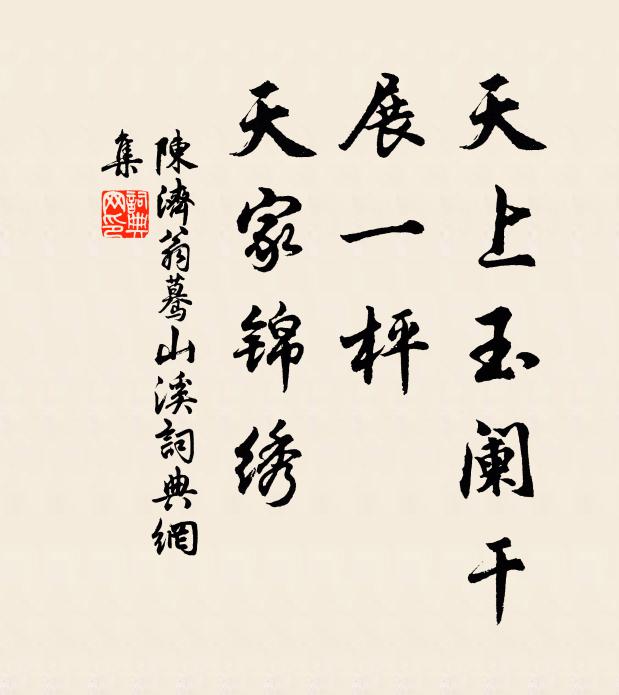 天上玉阑干
展一枰
天家锦绣
陳濟翁驀山溪詞典網
集
詞典
网印